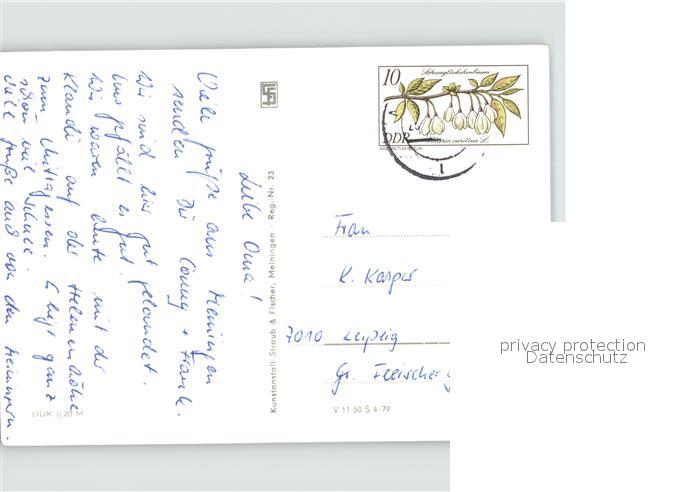 Liebe Oma!
Viele Grüße aus Meiningen
senden Dir Conny + Frank.
Wir sind hier gut gelandet.
uns gefällt es gut.
Wir waren heute mit der
Klaudi auf der Helenenhöhe
zum Mittagessen. Es liegt ganz
schön viel Schnee.
Viele Grüße auch von den Meiningern.
DDR 0,20 M
Kunstanstalt Straub & Fischer, Meiningen · Reg.-Nr. 23
10
Schneeglöckchenbaum
DDR
Halesia carolina L.
ARBORETUM BERLIN
Frau
K. Kasper
7010 Leipzig
Gr. Fleischer
V 11 50 S 4/79
privacy protection
Datenschutz